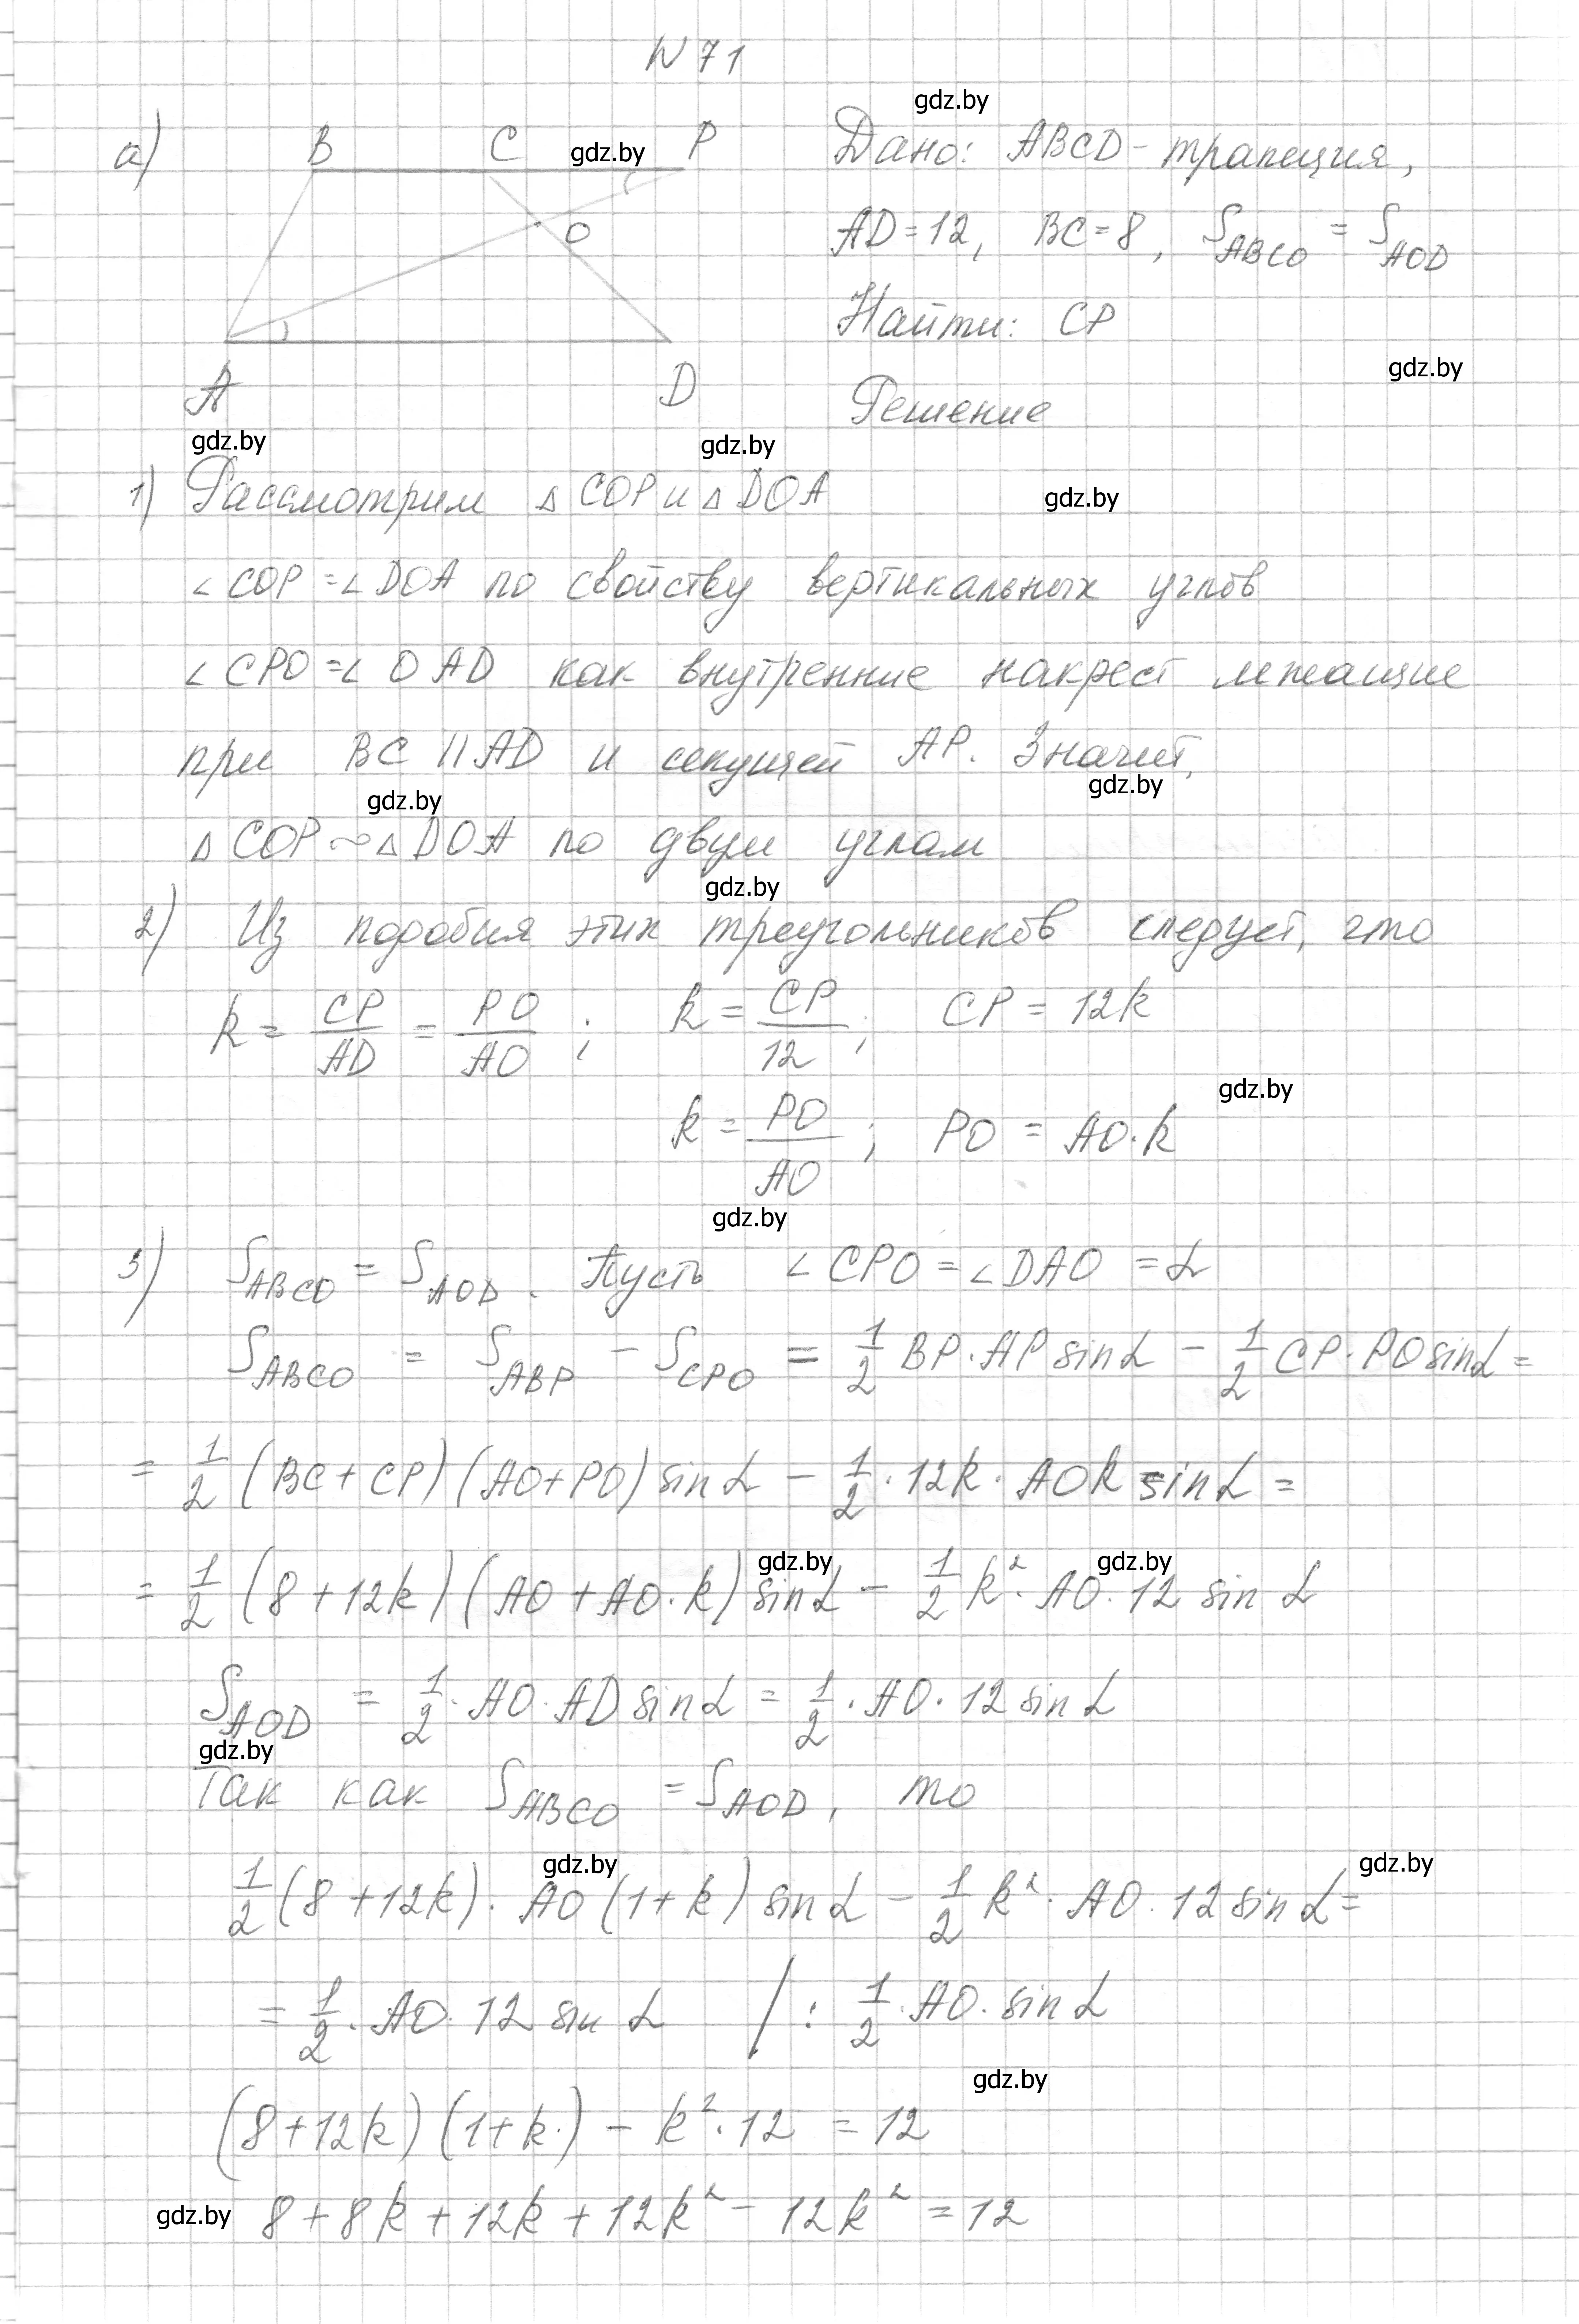 N 71
gdz.by
а) B C gdz.by P Дано: ABCD - трапеция,
O AD = 12, BC = 8, S_ABCO = S_AOD
Найти: CP
gdz.by
A D Решение
gdz.by gdz.by
1) Рассмотрим △ COP и △ DOA gdz.by
∠ COP = ∠ DOA по свойству вертикальных углов
∠ CPO = ∠ OAD как внутренние накрест лежащие
при BC || AD и секущей AP. Значит,
gdz.by gdz.by
△ COP ~ △ DOA по двум углам
gdz.by
2) Из подобия этих треугольников следует, что
k = CP/AD = PO/AO ; k = CP/12 ; CP = 12k
gdz.by
k = PO/AO ; PO = AO · k
gdz.by
3) S_ABCO = S_AOD. Пусть ∠ CPO = ∠ DAO = α
S_ABCO = S_ABP - S_CPO = 1/2 BP · AP sin α - 1/2 CP · PO sin α =
= 1/2 (BC + CP)(AO + PO) sin α - 1/2 · 12k · AOk sin α =
gdz.by gdz.by
= 1/2 (8 + 12k)(AO + AO · k) sin α - 1/2 k² · AO · 12 sin α
S_AOD = 1/2 · AO · AD sin α = 1/2 · AO · 12 sin α
gdz.by
Так как S_ABCO = S_AOD, то
gdz.by gdz.by
1/2 (8 + 12k) · AO (1 + k) sin α - 1/2 k² · AO · 12 sin α =
= 1/2 · AO · 12 sin α | : 1/2 · AO · sin α
gdz.by
(8 + 12k)(1 + k) - k² · 12 = 12
gdz.by 8 + 8k + 12k + 12k² - 12k² = 12